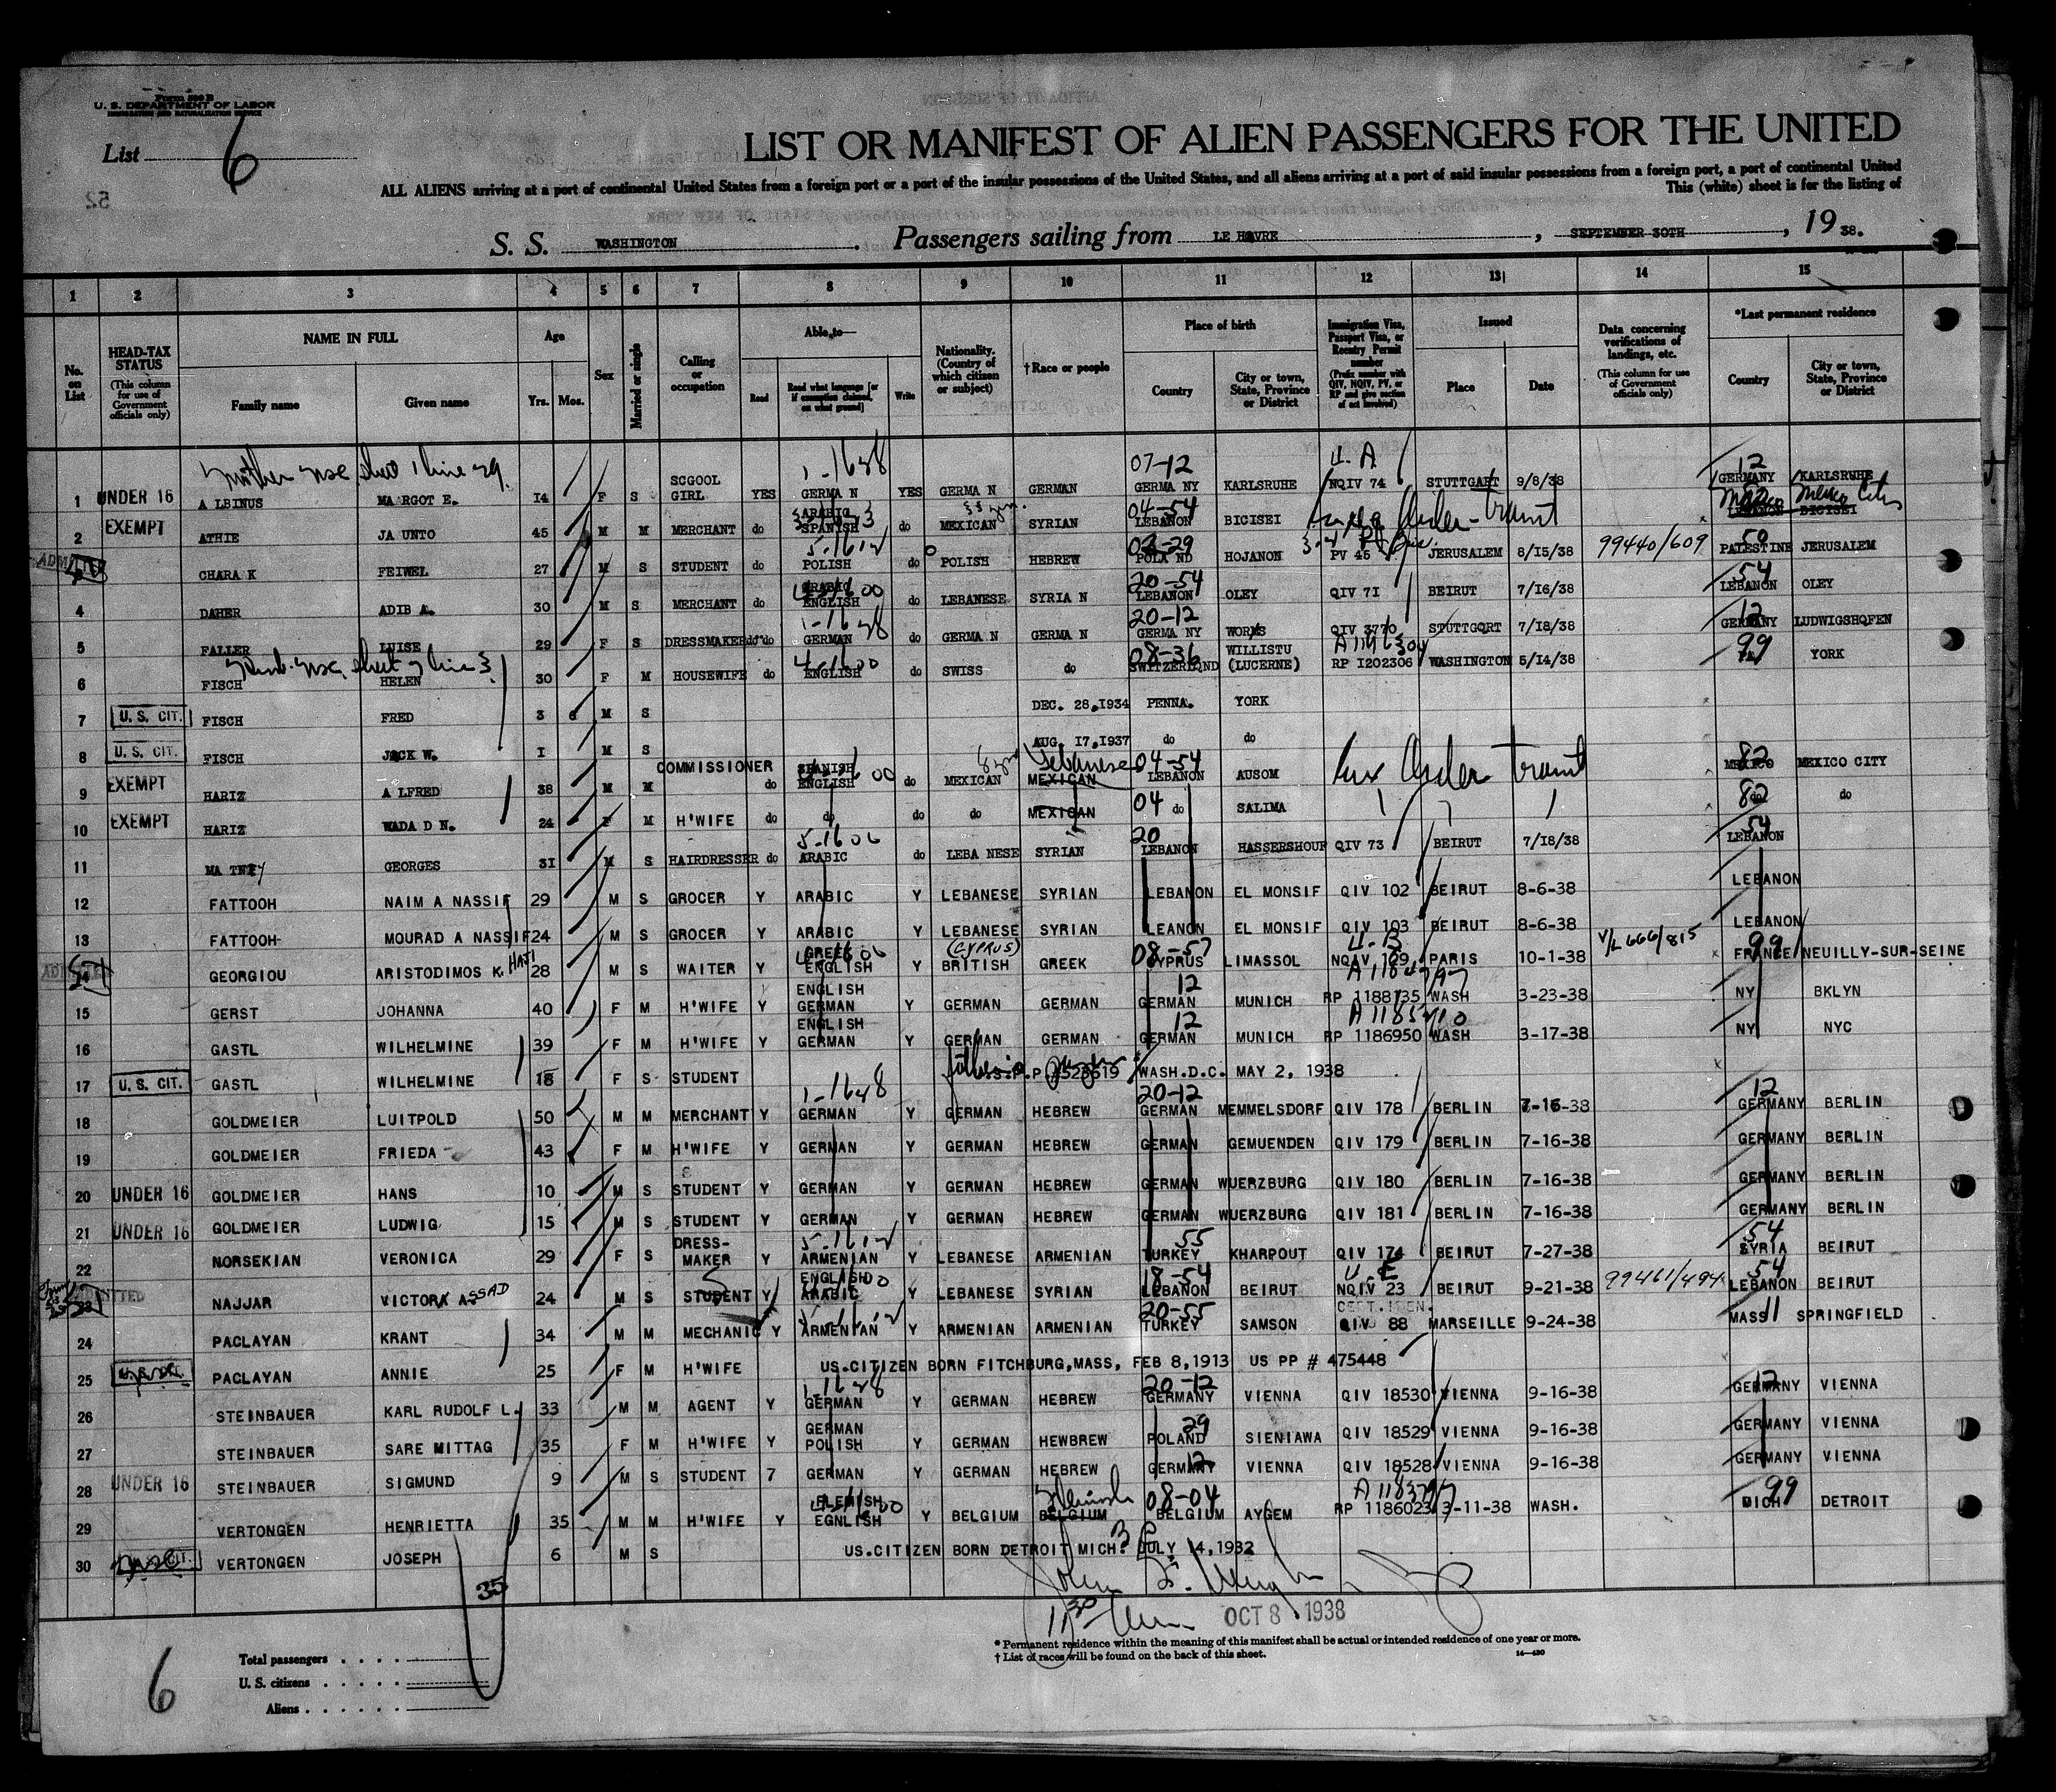 Form 500 B
U. S. DEPARTMENT OF LABOR
IMMIGRATION AND NATURALIZATION SERVICE
List 6
LIST OR MANIFEST OF ALIEN PASSENGERS FOR THE UNITED
ALL ALIENS arriving at a port of continental United States from a foreign port or a port of the insular possessions of the United States, and all aliens arriving at a port of said insular possessions from a foreign port, a port of continental United
This (white) sheet is for the listing of
52
S. S. WASHINGTON. Passengers sailing from LE HAVRE, SEPTEMBER 30TH, 19 38.
1 2 3 4 5 6 7 8 9 10 11 12 13 14 15
No. on List
HEAD-TAX STATUS (This column for use of Government officials only)
NAME IN FULL Family name Given name
Age Yrs. Mos.
Sex
Married or single
Calling or occupation
Able to— Read Read what language [or if exemption claimed, on what ground] Write
Nationality. (Country of which citizen or subject)
†Race or people
Place of birth Country City or town, State, Province or District
Immigration Visa, Passport Visa, or Reentry Permit number (Prefix number with QIV, NQIV, PV, or RP and give section of act involved)
Issued Place Date
Data concerning verifications of landings, etc. (This column for use of Government officials only)
*Last permanent residence Country City or town, State, Province or District
Mother sheet 1 line 29. 1-1628 07-12 4. A 12
1 UNDER 16 ALBINUS MARGOT E. 14 F S SCGOOL GIRL YES GERMAN YES GERMAN GERMAN GERMANY KARLSRUHE NQIV 74 STUTTGART 9/8/38 GERMANY KARLSRUHE
Mexico Mexico City
2 EXEMPT ATHIE JAUNTO 45 M M MERCHANT do ARABIC SPANISH do MEXICAN SYRIAN 04-54 LEBANON BICISEI transit LEBANON BICISEI
3 CHARAK FEIWEL 27 M S STUDENT do POLISH do POLISH HEBREW POLAND HOJANON PV 45 JERUSALEM 8/15/38 99440/609 PALESTINE JERUSALEM
4 DAHER ADIB A. 30 M S MERCHANT do ARABIC ENGLISH do LEBANESE SYRIAN 20-54 LEBANON OLEY QIV 71 BEIRUT 7/16/38 54 LEBANON OLEY
5 FALLER LUISE 29 F S DRESSMAKER do GERMAN do GERMAN GERMAN 20-12 GERMANY WORMS QIV 3770 STUTTGORT 7/18/38 12 GERMANY LUDWIGSHOFEN
6 FISCH HELEN 30 F M HOUSEWIFE do ENGLISH do SWISS do 08-36 SWITZERLAND WILLISTU (LUCERNE) RP 1202306 WASHINGTON 5/14/38 99 YORK
7 U. S. CIT. FISCH FRED 3 6 M S DEC. 28, 1934 PENNA. YORK
8 U. S. CIT. FISCH JACK W. 1 M S AUG. 17, 1937 do do
9 EXEMPT HARIZ ALFRED 38 M M COMMISSIONER do SPANISH ENGLISH do MEXICAN MEXICAN Lebanese 04-54 LEBANON AUSOM transit 82 MEXICO MEXICO CITY
10 EXEMPT HARIZ WADAD N. 24 F M H'WIFE do do do do MEXICAN 04 do SALIMA 82 do do
11 MATNEY GEORGES 31 M S HAIRDRESSER do ARABIC do LEBANESE SYRIAN 20 LEBANON HASSERSHOUF QIV 73 BEIRUT 7/18/38 54 LEBANON
12 FATTOOH NAIM A NASSIF 29 M S GROCER Y ARABIC Y LEBANESE SYRIAN LEBANON EL MONSIF QIV 102 BEIRUT 8-6-38 LEBANON
13 FATTOOH MOURAD A NASSIF 24 M S GROCER Y ARABIC Y LEBANESE SYRIAN LEANON EL MONSIF QIV 103 BEIRUT 8-6-38 LEBANON
14 GEORGIOU ARISTODIMOS K. HAJI 28 M S WAITER Y GREEK ENGLISH Y (CYPRUS) BRITISH GREEK 08-57 CYPRUS LIMASSOL NQAV 109 PARIS 10-1-38 V/L 666/815 99 FRANCE NEUILLY-SUR-SEINE
15 GERST JOHANNA 40 F M H'WIFE Y ENGLISH GERMAN Y GERMAN GERMAN 12 GERMAN MUNICH RP 1188735 WASH 3-23-38 NY BKLYN
16 GASTL WILHELMINE 39 F M H'WIFE Y ENGLISH GERMAN Y GERMAN GERMAN 12 GERMAN MUNICH RP 1186950 WASH 3-17-38 NY NYC
17 U. S. CIT. GASTL WILHELMINE 18 F S STUDENT WASH.D.C. MAY 2, 1938
18 GOLDMEIER LUITPOLD 50 M M MERCHANT Y 1-1648 GERMAN Y GERMAN HEBREW 20-12 GERMAN MEMMELSDORF QIV 178 BERLIN 7-16-38 12 GERMANY BERLIN
19 GOLDMEIER FRIEDA 43 F M H'WIFE Y GERMAN Y GERMAN HEBREW GERMAN GEMUENDEN QIV 179 BERLIN 7-16-38 GERMANY BERLIN
20 UNDER 16 GOLDMEIER HANS 10 M S STUDENT Y GERMAN Y GERMAN HEBREW GERMAN WUERZBURG QIV 180 BERLIN 7-16-38 GERMANY BERLIN
21 UNDER 16 GOLDMEIER LUDWIG 15 M S STUDENT Y GERMAN Y GERMAN HEBREW GERMAN WUERZBURG QIV 181 BERLIN 7-16-38 GERMANY BERLIN
22 NORSEKIAN VERONICA 29 F S DRESS-MAKER Y ARMENIAN Y LEBANESE ARMENIAN 55 TURKEY KHARPOUT QIV 174 BEIRUT 7-27-38 54 SYRIA BEIRUT
23 NAJJAR VICTORA ASSAD 24 M S STUDENT Y ENGLISH ARABIC Y LEBANESE SYRIAN 18-54 LEBANON BEIRUT NQIV 23 BEIRUT 9-21-38 99461/494 54 LEBANON BEIRUT
24 PACLAYAN KRANT 34 M M MECHANIC Y ARMENIAN Y ARMENIAN ARMENIAN 20-55 TURKEY SAMSON QIV 88 MARSEILLE 9-24-38 MASS 11 SPRINGFIELD
25 PACLAYAN ANNIE 25 F M H'WIFE US.CITIZEN BORN FITCHBURG,MASS, FEB 8,1913 US PP # 475448
26 STEINBAUER KARL RUDOLF L. 33 M M AGENT Y GERMAN Y GERMAN HEBREW 20-12 GERMANY VIENNA QIV 18530 VIENNA 9-16-38 12 GERMANY VIENNA
27 STEINBAUER SARE MITTAG 35 F M H'WIFE Y GERMAN POLISH Y GERMAN HEWBREW 29 POLAND SIENIAWA QIV 18529 VIENNA 9-16-38 GERMANY VIENNA
28 UNDER 16 STEINBAUER SIGMUND 9 M S STUDENT 7 GERMAN Y GERMAN HEBREW 12 GERMANY VIENNA QIV 18528 VIENNA 9-16-38 GERMANY VIENNA
29 VERTONGEN HENRIETTA 35 M M H'WIFE Y FLEMISH EGNLISH Y BELGIUM BELGIUM Flemish 08-04 BELGIUM AYGEM RP 1186023 3-11-38 WASH. MICH 99 DETROIT
30 VERTONGEN JOSEPH 6 M S US.CITIZEN BORN DETROIT MICH. JULY 14,1932
35
OCT 8 1938
* Permanent residence within the meaning of this manifest shall be actual or intended residence of one year or more.
† List of races will be found on the back of this sheet.
14—430
6
Total passengers
U. S. citizens
Aliens